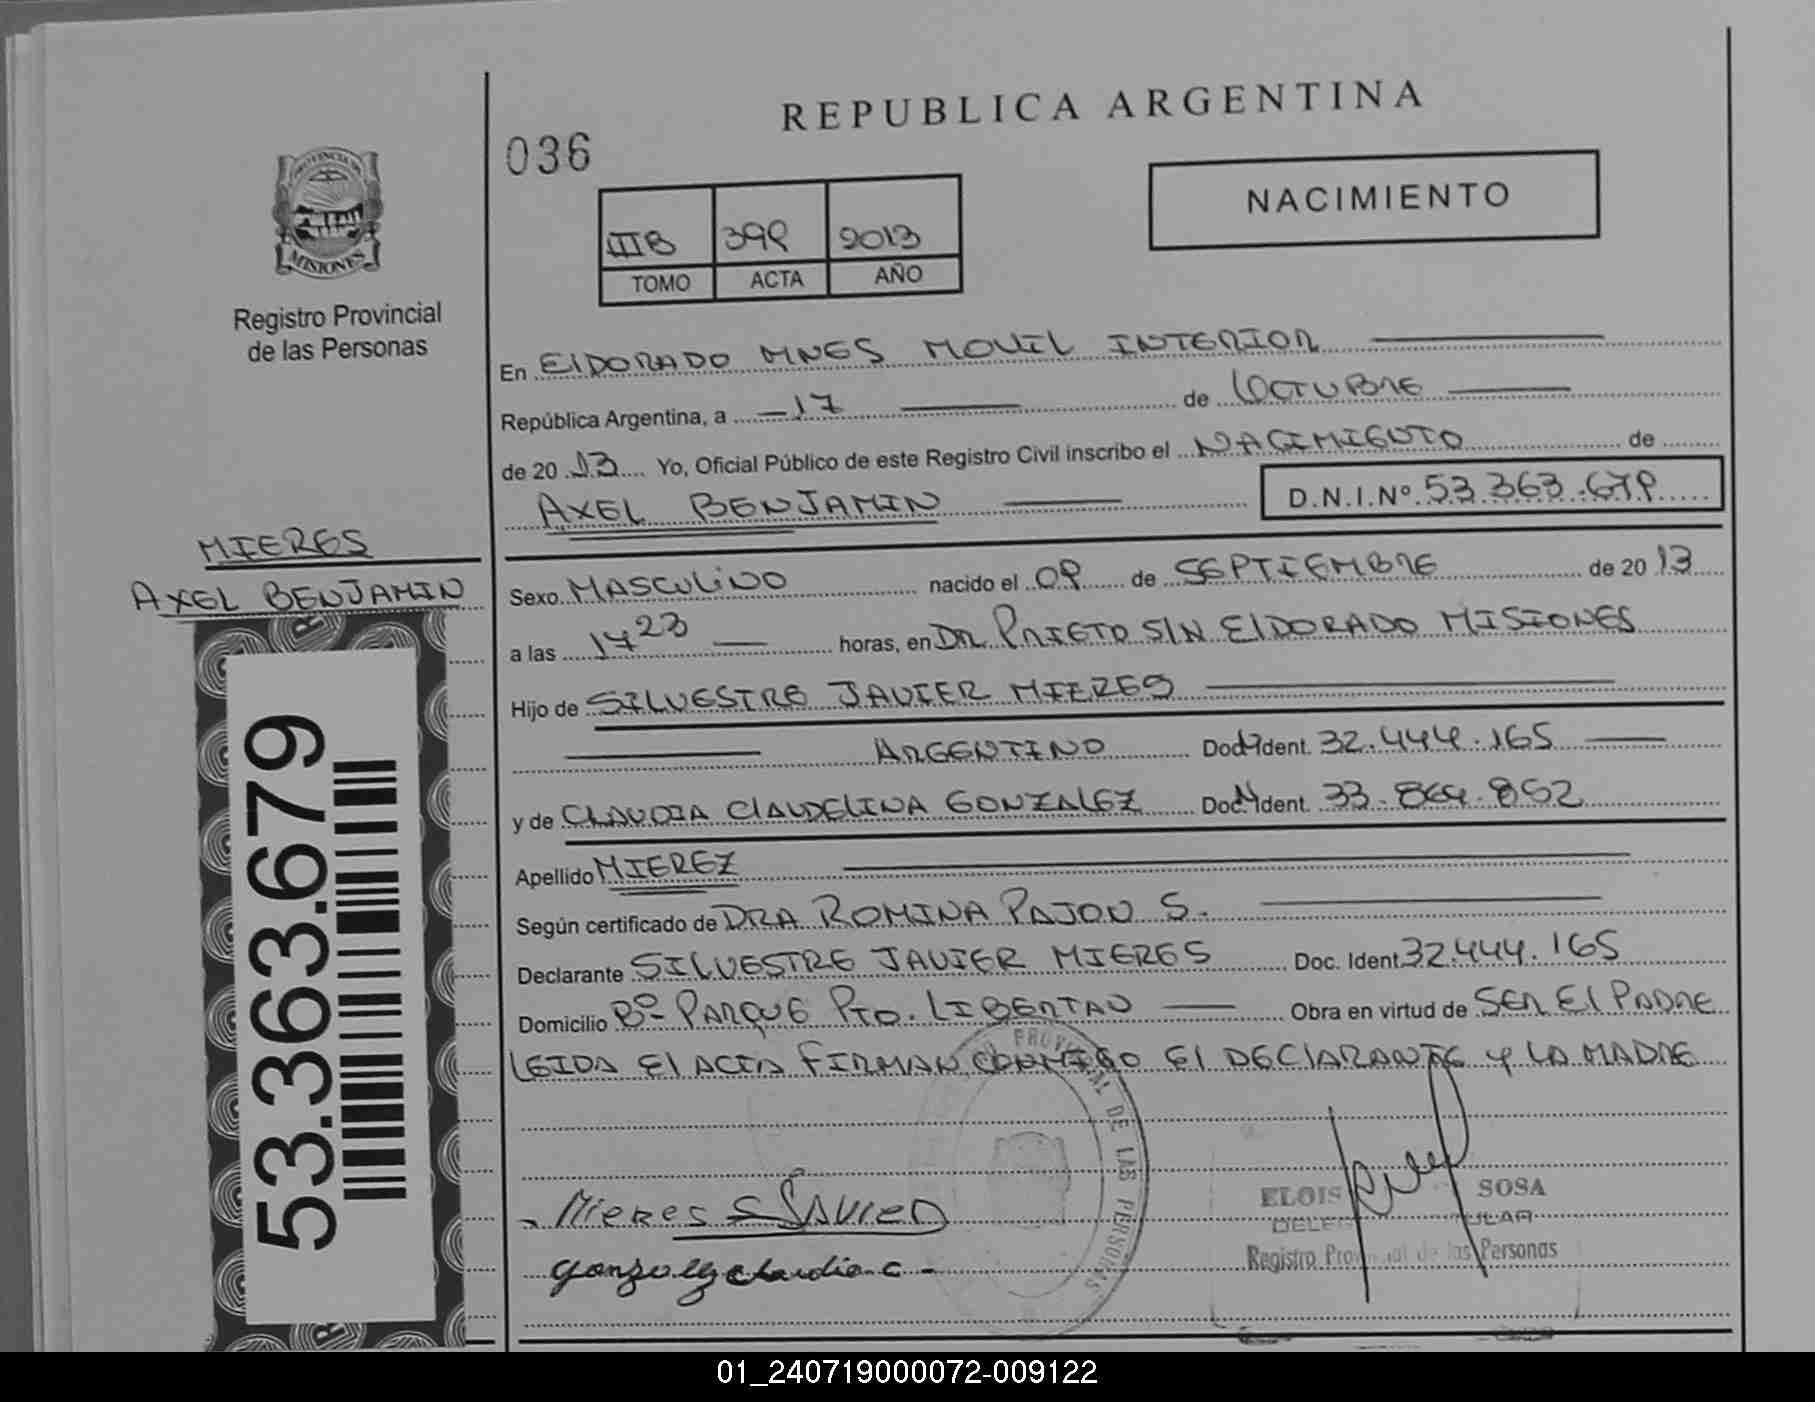 REPUBLICA ARGENTINA
036
NACIMIENTO
IIIB 399 2013
TOMO ACTA AÑO
PROVINCIA DE
MISIONES
Registro Provincial
de las Personas
En ELDORADO MNES MOVIL INTERIOR
República Argentina, a 17 de OCTUBRE
de 2013 Yo, Oficial Público de este Registro Civil inscribo el NACIMIENTO de
AXEL BENJAMIN D.N.I.Nº 53.363.679
MIERES
AXEL BENJAMIN
53.363.679
Sexo MASCULINO nacido el 09 de SEPTIEMBRE de 2013
a las 17 23 horas, en DR PRIETO S/N ELDORADO MISIONES
Hijo de SILVESTRE JAVIER MIERES
ARGENTINO Doc. Ident. 32.444.165
y de CLAUDIA CLAUDELINA GONZALEZ Doc. Ident. 33.864.852
Apellido MIEREZ
Según certificado de DRA ROMINA PAJON S.
Declarante SILVESTRE JAVIER MIERES Doc. Ident. 32.444.165
Domicilio Bº PARQUE PTO. LIBERTAD Obra en virtud de SER EL PADRE
LEIDA EL ACTA FIRMAN CONMIGO EL DECLARANTE Y LA MADRE
PROVINCIAL DE LAS PERSONAS
Mieres S Javier
Gonzalez Claudia C.
ELOIS SOSA
Registro Provincial de las Personas
01_240719000072-009122